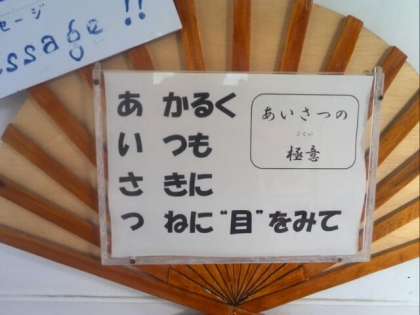 セージ
ssage !!
あかるく
いつも
さきに
つねに"目"をみて
あいさつの
ごくい
極意